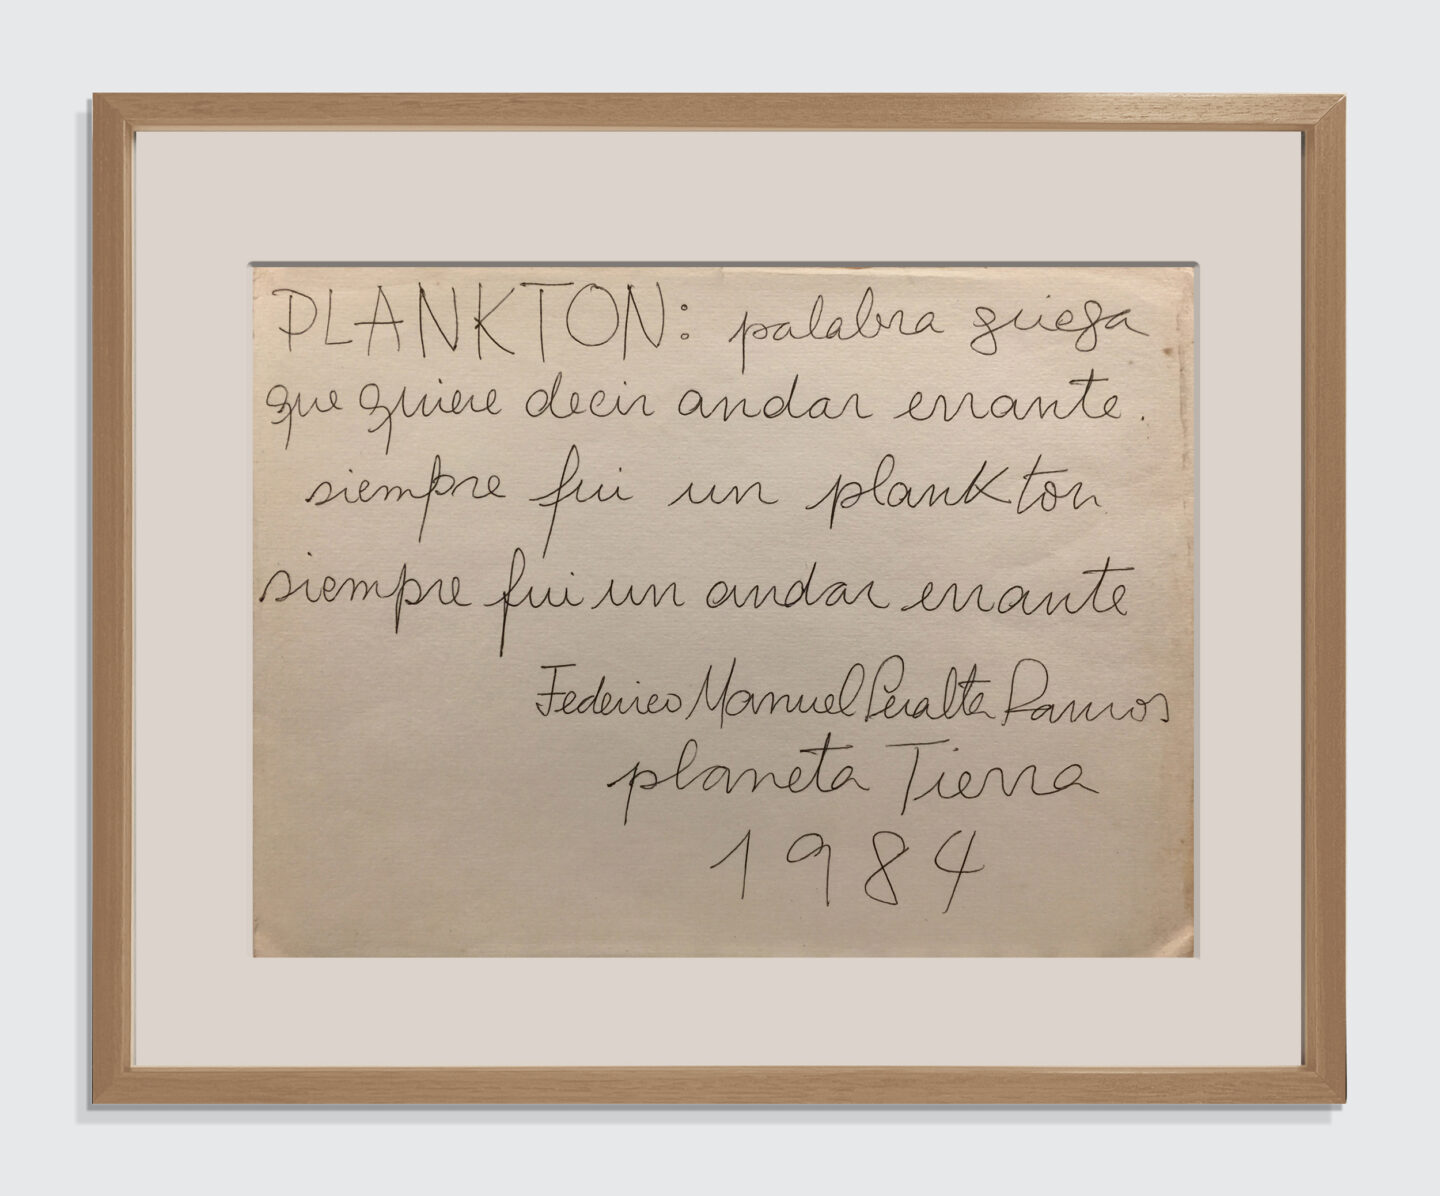 PLANKTON: palabra griega
que quiere decir andar errante.
siempre fui un plankton
siempre fui un andar errante
Federico Manuel Peralta Ramos
planeta Tierra
1984